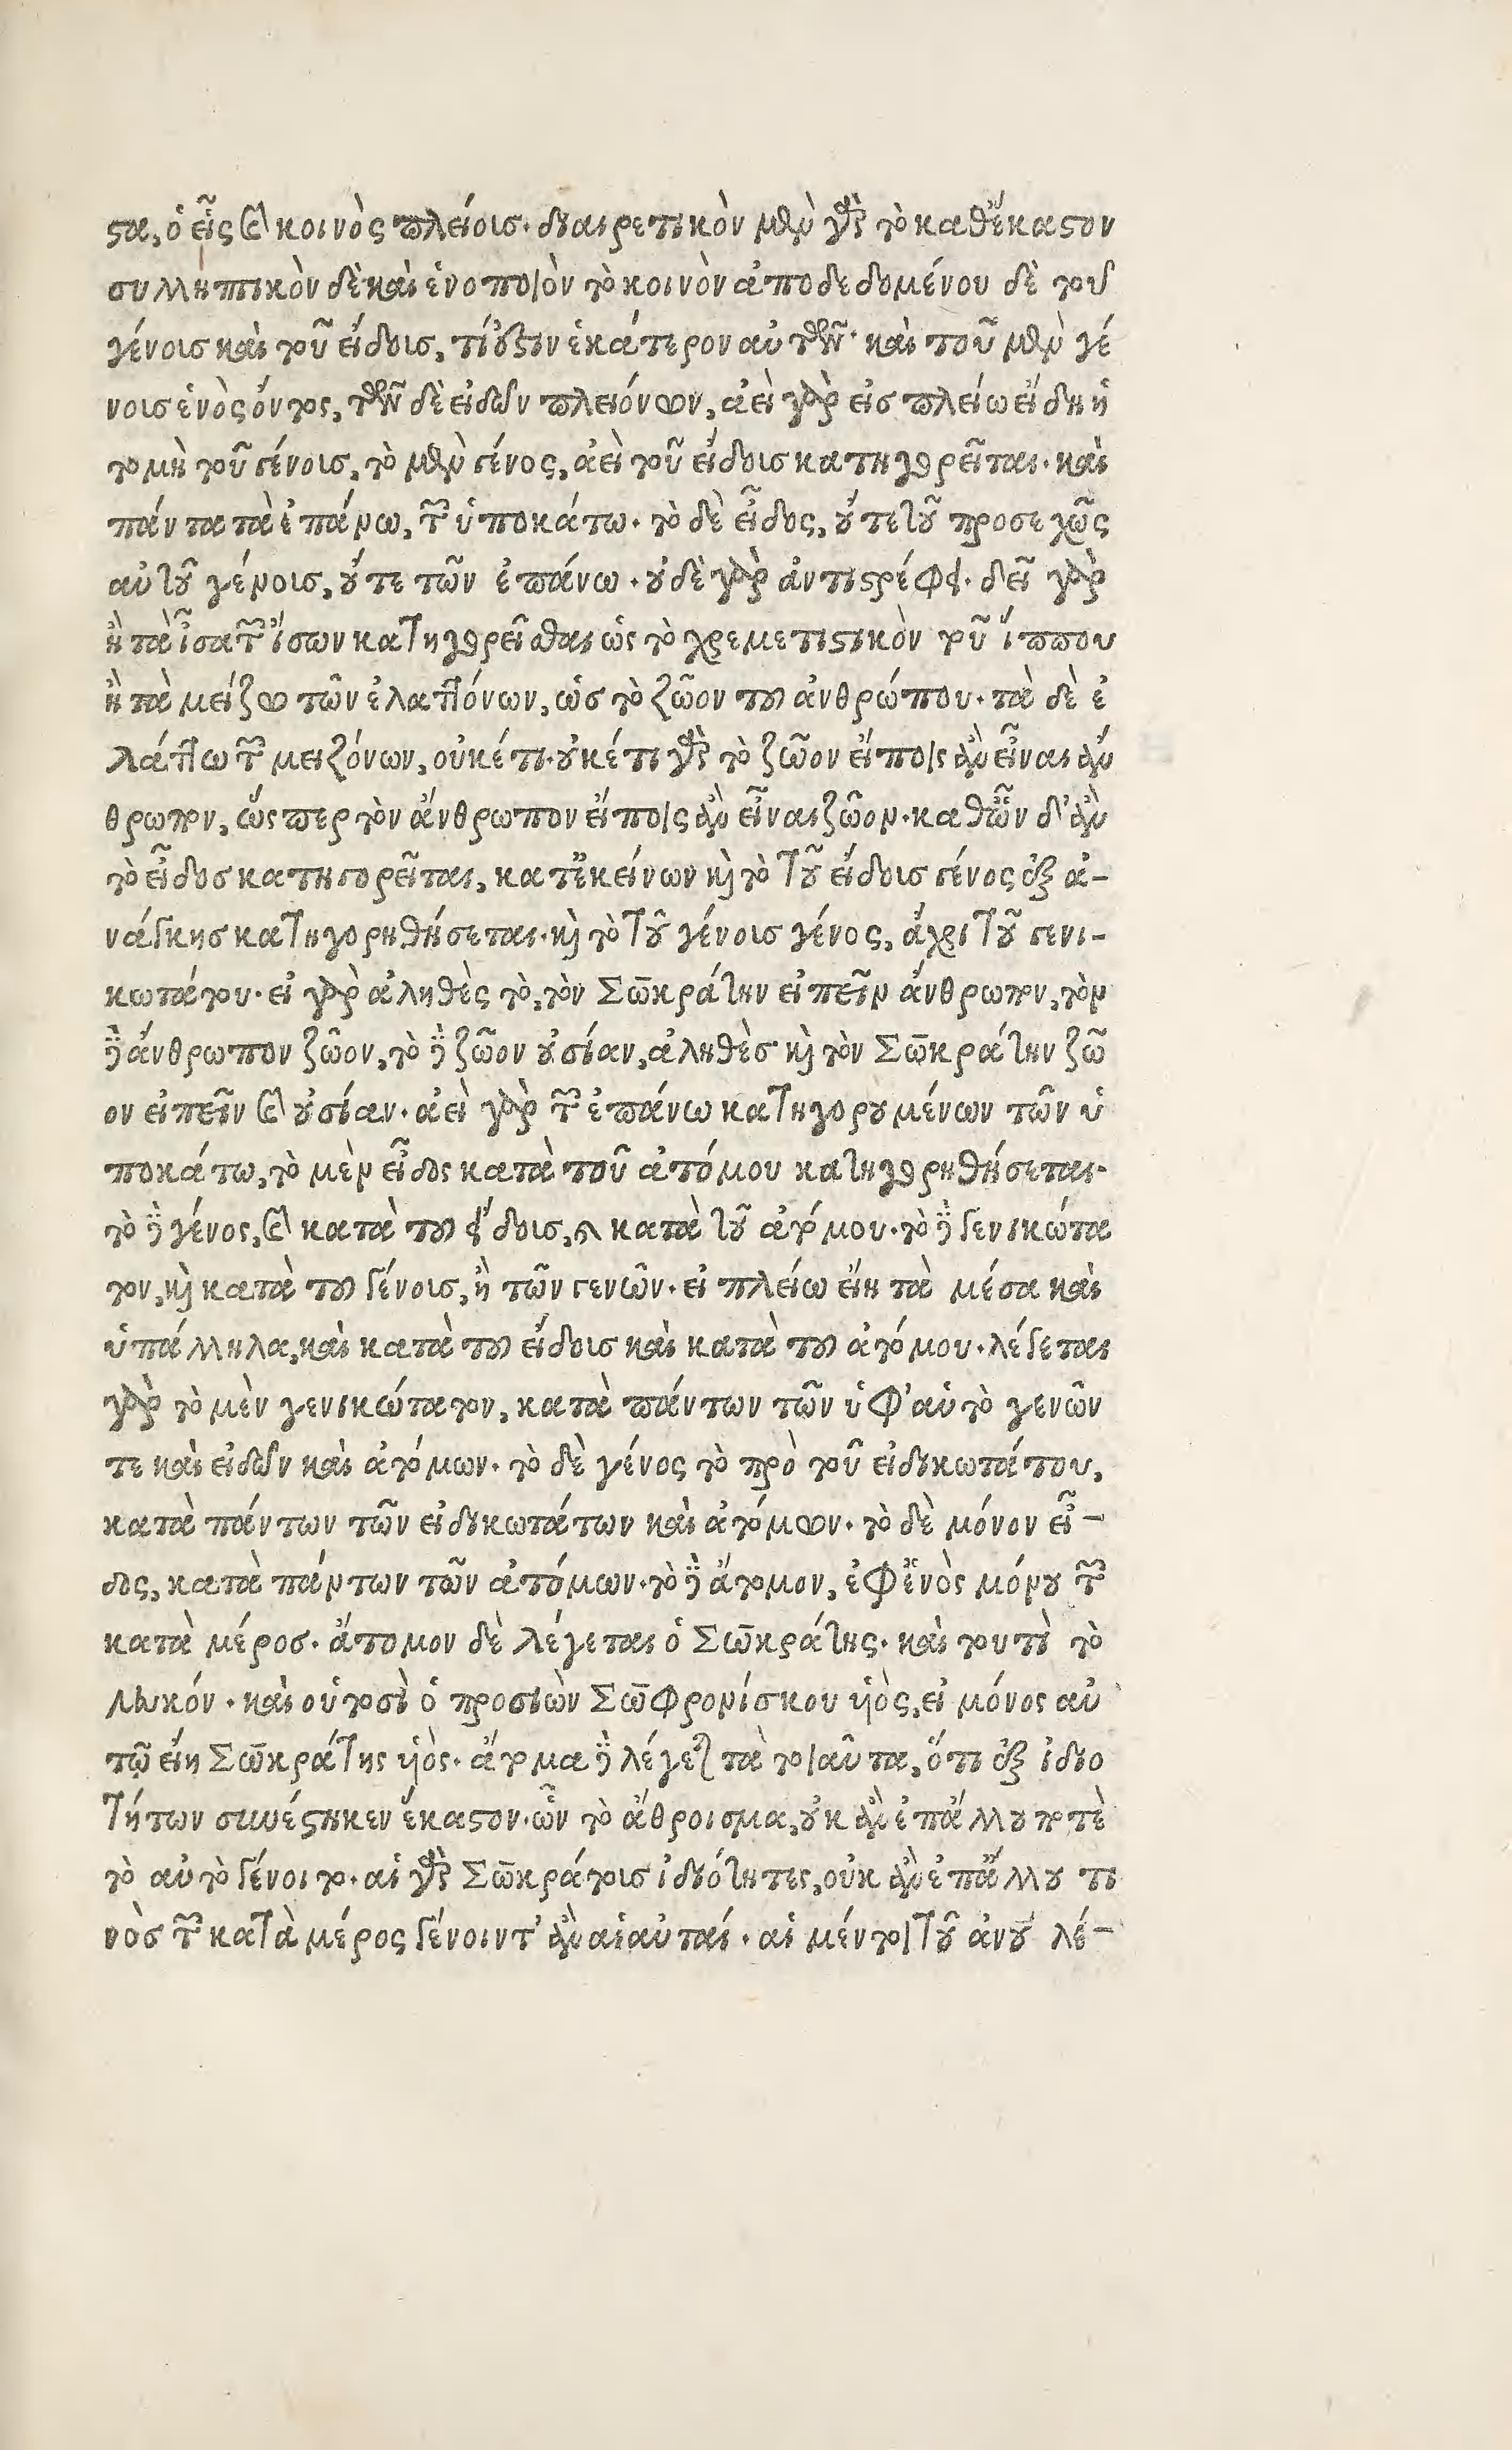 στα, ὁ εἷς καὶ κοινὸς πλείους· διαιρετικὸν μὲν γὰρ τὸ καθἕκαστον
συλληπτικὸν δὲ καὶ ἑνοποιὸν τὸ κοινὸν ἀποδεδομένου δὲ τοῦ
γένους καὶ τοῦ εἴδους, τί ἐστιν ἑκάτερον αὐτῶν· καὶ τοῦ μὲν γέ
νους ἑνὸς ὄντος, τῶν δὲ εἰδῶν πλειόνων, ἀεὶ γὰρ εἰς πλείω εἴδη ἡ
τομὴ τοῦ γένους, τὸ μὲν γένος, ἀεὶ τοῦ εἴδους κατηγορεῖται· καὶ
πάντα τὰ ἐπάνω, τῶν ὑποκάτω· τὸ δὲ εἶδος, οὔτε τοῦ προσεχῶς
αὐτοῦ γένους, οὔτε τῶν ἐπάνω· οὐδὲ γὰρ ἀντιστρέφει· δεῖ γὰρ
ἢ τὰ ἶσα τῶν ἴσων κατηγορεῖσθαι ὡς τὸ χρεμετιστικὸν τοῦ ἵππου
ἢ τὰ μείζω τῶν ἐλαττόνων, ὡς τὸ ζῶον τοῦ ἀνθρώπου· τὰ δὲ ἐ
λάττω τῶν μειζόνων, οὐκέτι· οὐκέτι γὰρ τὸ ζῶον εἴποις ἂν εἶναι ἄν
θρωπον, ὥσπερ τὸν ἄνθρωπον εἴποις ἂν εἶναι ζῶον· καθὧν δ' ἂν
τὸ εἶδος κατηγορεῖται, κατἐκείνων καὶ τὸ τοῦ εἴδους γένος ἐξ ἀ-
νάγκης κατηγορηθήσεται· καὶ τὸ τοῦ γένους γένος, ἄχρι τοῦ γενι-
κωτάτου· εἰ γὰρ ἀληθὲς τὸ, τὸν Σωκράτην εἰπεῖν ἄνθρωπον, τὸν
δὲ ἄνθρωπον ζῶον, τὸ δὲ ζῶον οὐσίαν, ἀληθὲς καὶ τὸν Σωκράτην ζῶ
ον εἰπεῖν καὶ οὐσίαν· ἀεὶ γὰρ τῶν ἐπάνω κατηγορουμένων τῶν ὑ
ποκάτω, τὸ μὲν εἶδος κατὰ τοῦ ἀτόμου κατηγορηθήσεται·
τὸ δὲ γένος, καὶ κατὰ τοῦ εἴδους, καὶ κατὰ τοῦ ἀτόμου· τὸ δὲ γενικώτα
τον, καὶ κατὰ τοῦ γένους, ἢ τῶν γενῶν· εἰ πλείω εἴη τὰ μέσα καὶ
ὑπάλληλα, καὶ κατὰ τοῦ εἴδους καὶ κατὰ τοῦ ἀτόμου· λέγεται
γὰρ τὸ μὲν γενικώτατον, κατὰ πάντων τῶν ὑφ' αὑτὸ γενῶν
τε καὶ εἰδῶν καὶ ἀτόμων· τὸ δὲ γένος τὸ πρὸ τοῦ εἰδικωτάτου,
κατὰ πάντων τῶν εἰδικωτάτων καὶ ἀτόμων· τὸ δὲ μόνον εἶ-
δος, κατὰ πάντων τῶν ἀτόμων· τὸ δὲ ἄτομον, ἐφἑνὸς μόνου τῶν
κατὰ μέρος· ἄτομον δὲ λέγεται ὁ Σωκράτης· καὶ τουτὶ τὸ
λευκόν· καὶ οὑτοσὶ ὁ προσιὼν Σωφρονίσκου υἱὸς, εἰ μόνος αὐ
τῷ εἴη Σωκράτης υἱὸς· ἄτομα δὲ λέγεται τὰ τοιαῦτα, ὅτι ἐξ ἰδιο
τήτων συνέστηκεν ἕκαστον· ὧν τὸ ἄθροισμα, οὐκ ἂν ἐπἄλλου ποτὲ
τὸ αὐτὸ γένοιτο· αἱ γὰρ Σωκράτους ἰδιότητες, οὐκ ἂν ἐπἄλλου τι
νὸς τῶν κατὰ μέρος γένοιντ' ἂν αἱ αὐταί· αἱ μέντοι τοῦ ἀνου λέ-